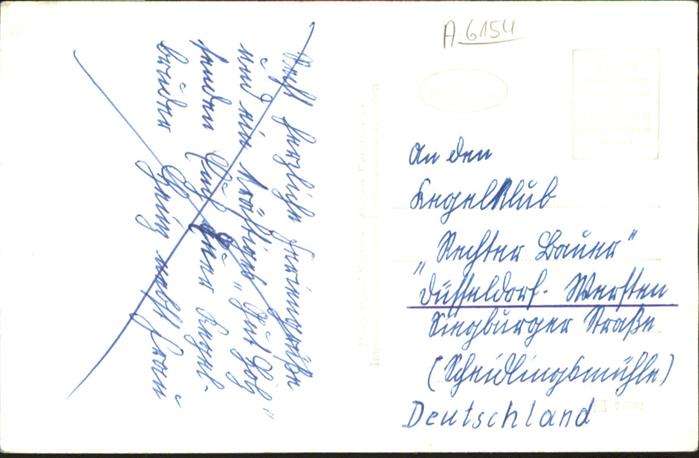 A 6154
Recht herzliche Feriengrüße
und ein kräftiges „Gut Holz"
senden Euch Euer Kegel-
bruder nebst Frau
An den
Kegelklub
„Rechter Bauer"
Düsseldorf- Wersten
Siegburger Straße
(Scheidlingsmühle)
Deutschland